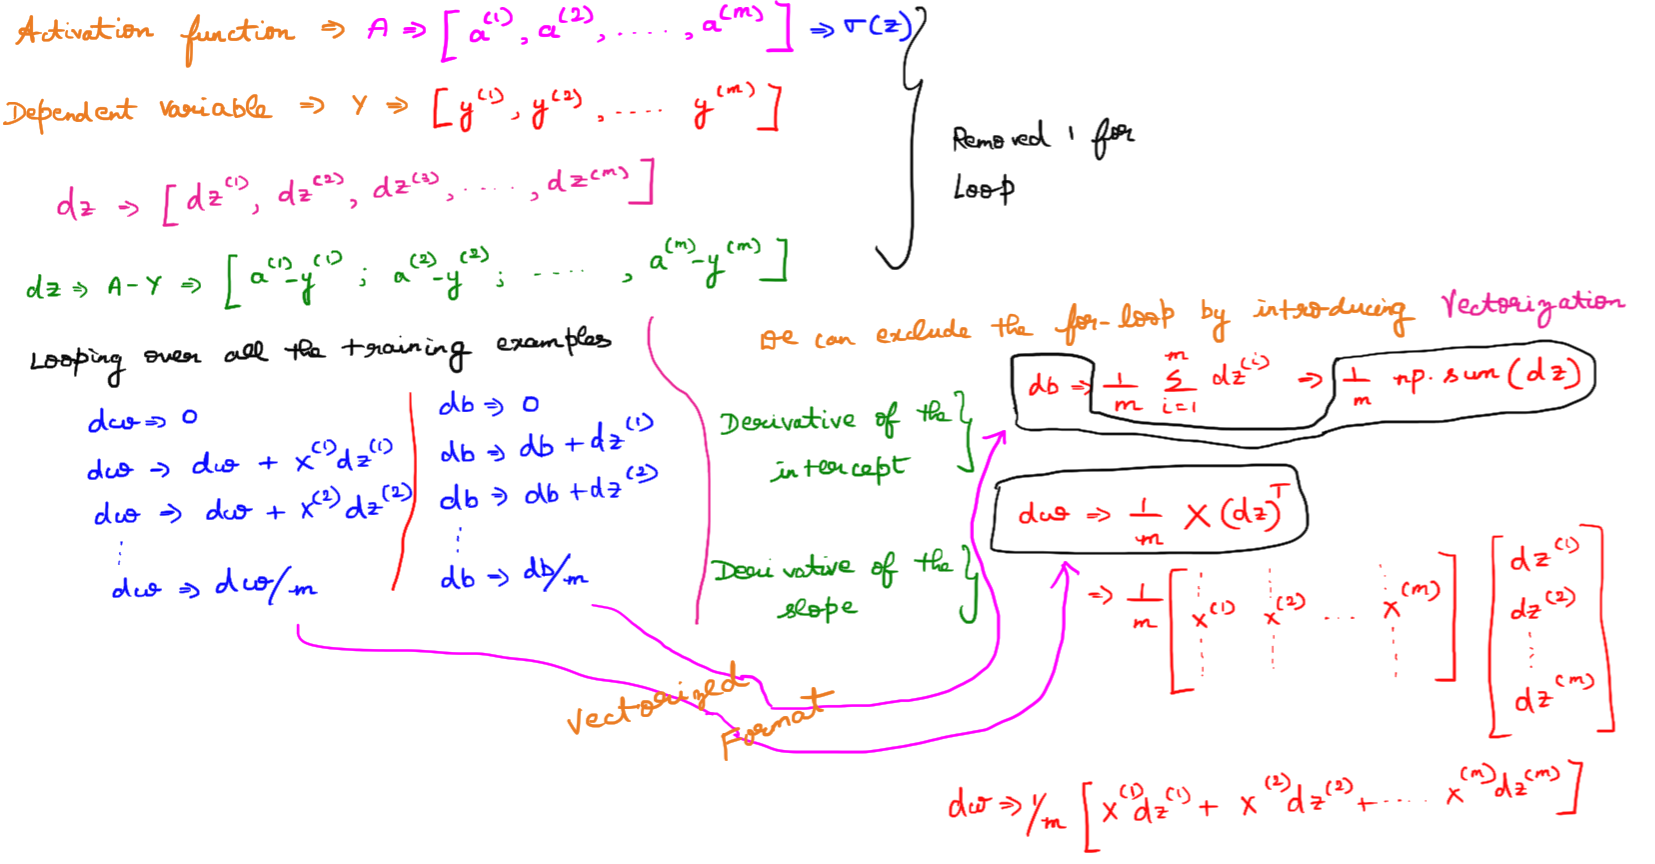 Activation function ⇒ A ⇒ [a⁽¹⁾, a⁽²⁾, ....., a⁽ᵐ⁾] ⇒ σ(z)
Dependent variable ⇒ Y ⇒ [y⁽¹⁾, y⁽²⁾, ..... y⁽ᵐ⁾]
Removed 1 for
Loop
dz ⇒ [dz⁽¹⁾, dz⁽²⁾, dz⁽³⁾, ....., dz⁽ᵐ⁾]
dz ⇒ A-Y ⇒ [a⁽¹⁾-y⁽¹⁾; a⁽²⁾-y⁽²⁾; ....., a⁽ᵐ⁾-y⁽ᵐ⁾]
Looping over all the training examples
dw ⇒ 0
dw ⇒ dw + x⁽¹⁾dz⁽¹⁾
dw ⇒ dw + x⁽²⁾dz⁽²⁾
⋮
dw ⇒ dw/m
db ⇒ 0
db ⇒ db + dz⁽¹⁾
db ⇒ db + dz⁽²⁾
⋮
db ⇒ db/m
We can exclude the for-loop by introducing Vectorization
Derivative of the
intercept
db ⇒ 1/m Σᵢ₌₁ᵐ dz⁽ⁱ⁾ ⇒ 1/m np.sum(dz)
Derivative of the
slope
dw ⇒ 1/m X(dz)ᵀ
⇒ 1/m [x⁽¹⁾ x⁽²⁾ ... x⁽ᵐ⁾] [dz⁽¹⁾ dz⁽²⁾ ⋮ dz⁽ᵐ⁾]
Vectorized
Format
dw ⇒ 1/m [x⁽¹⁾dz⁽¹⁾ + x⁽²⁾dz⁽²⁾ + ..... x⁽ᵐ⁾dz⁽ᵐ⁾]